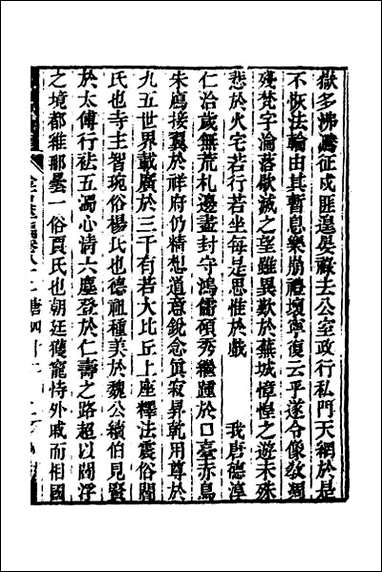 獄多怫鬱征戍匪遑晏祿去公室政行私門天網於是
不恢法輪由其暫息樂崩禮壞寧復云乎遂令像敎凋
殘梵字淪落歇滅之望雖異歎於蕪城惸惶之遊未殊
悲於火宅若行若坐每是思惟於戲　　我唐德淳
仁洽歲無荒札邊盡封守鴻儒碩秀繼踵於口臺赤鳥
朱鴈接翼於祥府仍精想道意銳念眞寂昇乾用尊於
九五世界載廣於三千有若大比丘上座釋法震俗閻
氏也寺主智琬俗楊氏也德祖種美於魏公績伯見賢
於太傅行祛五濁心清六塵登於仁壽之路超以閻浮
之境都維那曇一俗賈氏也朝廷獲寵恃外戚而相國